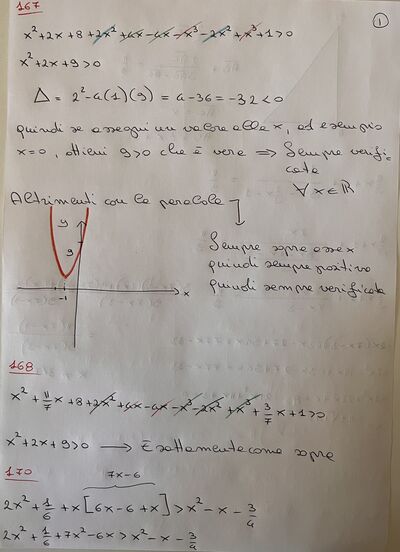 167
1
x² + 2x + 8 + 2x² + 4x - 4x - x³ - 2x² + x³ + 1 > 0
x² + 2x + 9 > 0
Δ = 2² - 4(1)(9) = 4 - 36 = -32 < 0
quindi se assegni un valore alla x, ad esempio
x=0, ottieni 9>0 che è vera ⇒ Sempre verifi-
cata
∀ x ∈ ℝ
Altrimenti con la parabola
y
9
-1
x
Sempre sopra asse x
quindi sempre positiva
quindi sempre verificata
168
x² + 11/7 x + 8 + 2x² + 4x - 4x - x³ - 2x² + x³ + 3/7 x + 1 > 0
x² + 2x + 9 > 0 → È esattamente come sopra
170
7x-6
2x² + 1/6 + x[6x - 6 + x] > x² - x - 3/4
2x² + 1/6 + 7x² - 6x > x² - x - 3/4